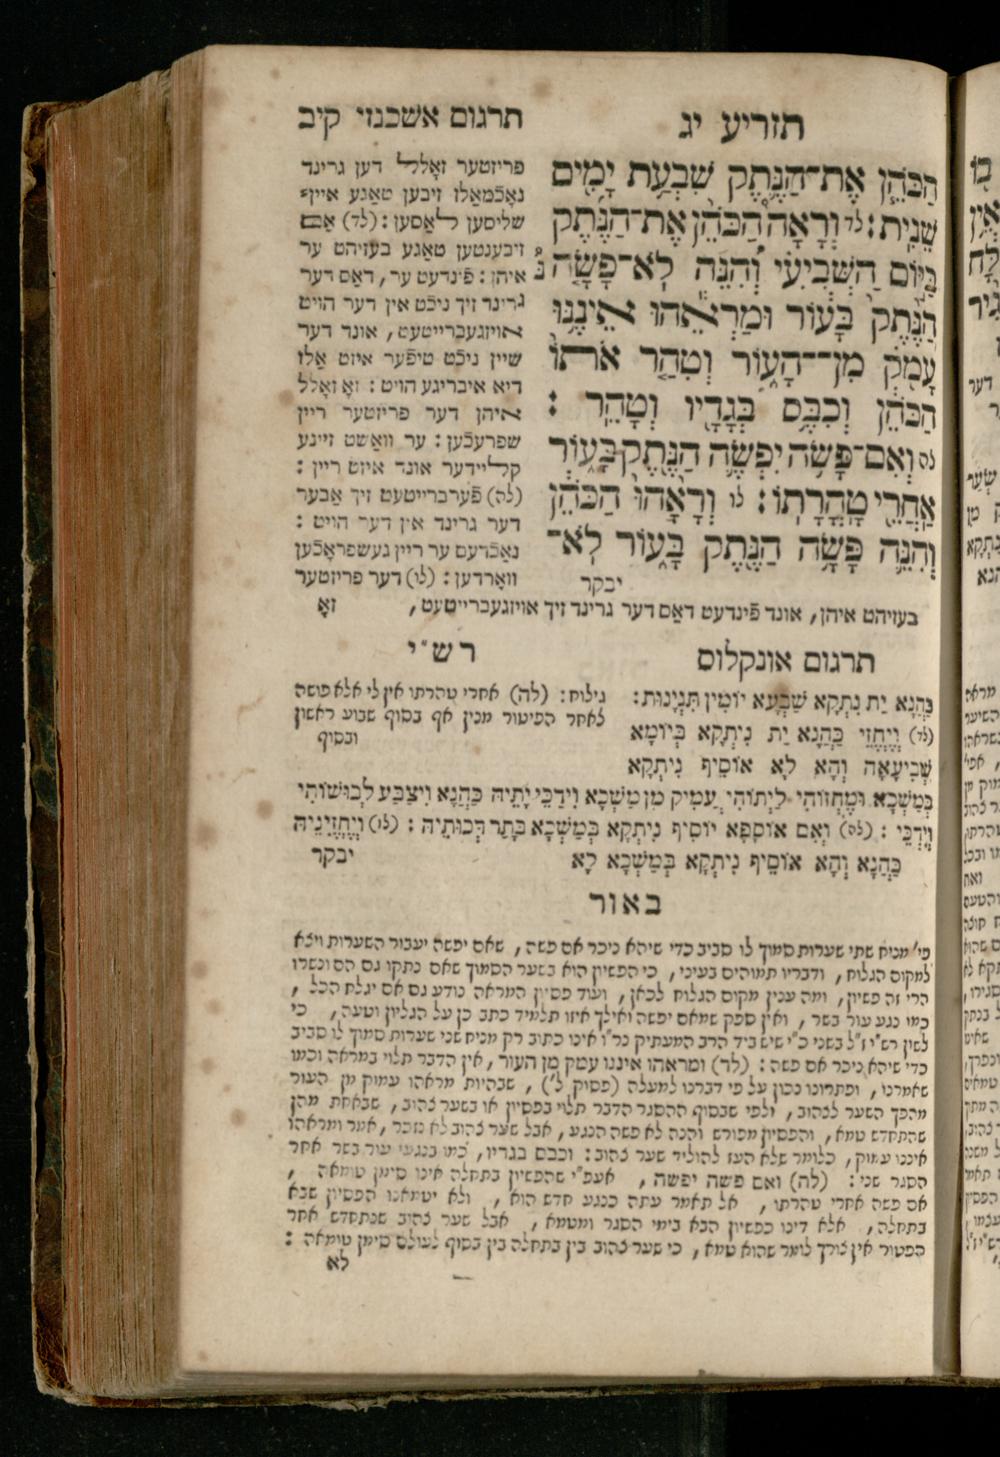 תזריע יג
תרגום אשכנזי קיב
הַכֹּהֵ֧ן אֶת־הַנֶּ֛תֶק שִׁבְעַ֥ת יָמִ֖ים
שֵׁנִֽית׃ לד וְרָאָה֩ הַכֹּהֵ֨ן אֶת־הַנֶּ֜תֶק
בַּיּ֣וֹם הַשְּׁבִיעִ֗י וְ֠הִנֵּה לֹא־פָשָׂ֤ה
הַנֶּ֙תֶק֙ בָּע֔וֹר וּמַרְאֵ֕הוּ אֵינֶ֥נּוּ
עָמֹ֖ק מִן־הָע֑וֹר וְטִהַ֤ר אֹתוֹ֙
הַכֹּהֵ֔ן וְכִבֶּ֥ס בְּגָדָ֖יו וְטָהֵֽר :
לה וְאִם־פָּשֹׂ֥ה יִפְשֶׂ֛ה הַנֶּ֖תֶק בָּע֑וֹר
אַחֲרֵ֖י טָהֳרָתֽוֹ׃ לו וְרָאָ֙הוּ֙ הַכֹּהֵ֔ן
וְהִנֵּ֛ה פָּשָׂ֥ה הַנֶּ֖תֶק בָּע֑וֹר לֹֽא־
יבקר
פריזטער זאָללל דען גרינד
נאָכמאַלז זיבען טאַגע איין־
שליסען לאַסען : (לד) אַם
זיבענטען טאַגע בעזיהט ער
איהן : פֿינדעט ער, דאַס דער
גרינד זיך ניכט אין דער הויט
אויזגעברייטעט, אונד דער
שיין ניכט טיפֿער איזט אַלז
דיא איבריגע הויט : זאָ זאָלל
איהן דער פריזטער ריין
שפרעכען : ער וואַשט זיינע
קליידער אונד איזט ריין :
(לה) פֿערברייטעט זיך אָבער
דער גרינד אין דער הויט :
נאַכדעם ער ריין געשפראָכען
וואָרדען : (לו) דער פריזטער
בעזיהט איהן, אונד פֿינדעט דאַס דער גרינד זיך אויזגעברייטעט, זאָ
תרגום אונקלוס
כַּהֲנָא יַת נִתְקָא שִׁבְעָא יוֹמִין תִּנְיָנוּת:
(לד) וְיֶחֱזֵי כַּהֲנָא יַת נִיתְקָא בְּיוֹמָא
שְׁבִיעָאָה וְהָא לָא אוֹסֵיף נִיתְקָא
בְּמַשְׁכָא וּמֶחֱזוֹהִי לֵיתוֹהִי עַמִיק מִן מַשְׁכָא וִידַכֵּי יָתֵיהּ כַּהֲנָא וִיצַבַּע לְבוּשׁוֹהִי
וְיִדְכֵּי : (לה) וְאִם אוֹסָפָא יוֹסִיף נִיתְקָא בְּמַשְׁכָא בָּתַר דְּכוּתֵיהּ : (לו) וְיֶחֱזֵינֵיהּ
כַּהֲנָא וְהָא אוֹסֵיף נִיתְקָא בְּמַשְׁכָא לָא יבקר
רש״י
גילוח: (לה) אחרי טהרתו אין לי אלא פושה
לאחר הפיטור מנין אף בסוף שבוע ראשון
ובסוף
באור
פי' מניח שתי שערות סמוך לו סביב כדי שיהא ניכר אם פשה, שאם יפשה יעבור השערות ויצא
למקום הגלוח, ודבריו תמוהים בעיני, כי הפשיון הוא בשער הסמוך שאם נתקו גם הם ונשרו
הרי זה פשיון, ומה ענין מקום הגלוח לכאן, ועוד פסיון המראה נודע גם אם יגלח הכל,
כמו נגע עור בשר, ואין ספק שמאם יפשה ואילך איזו תלמיד כתב כן על הגליון וטעה, כי
לשון רש״י ז״ל בשני כ״י שיש ביד הרב המעתיק נר״ו אינו כתוב רק מניח שני שערות סמוך לו סביב
כדי שיהא ניכר אם פשה : (לד) ומראהו איננו עמק מן העור, אין הדבר תלוי במראה וכמו
שאמרנו, ופתרונו נכון על פי דברנו למעלה (פסוק ל'), שבהיות מראהו עמוק מן העור
מהפך השער לצהוב, ולפי שבסוף ההסגר הדבר תלוי בפסיון או בשער צהוב, שבאחת מהן
שהתחדש טמא, והפסיון מפורש והנה לא פשה הנגע, אבל שער צהוב לא נזכר, אמר ומראהו
איננו עמוק, כלומר שלא העז להוליד שער צהוב : וכבס בגדיו, כמו בנגעי עור בשר אחר
הסגר שני : (לה) ואם פשה יפשה, אעפ״י שהפשיון בתחלה אינו סימן טומאה,
אם פשה אחרי טהרתו, אל תאמר עתה כנגע חדש הוא, ולא יטמאנו הפסיון שבא
בתחלה, אלא דינו כפשיון הבא בימי הסגר ומטמא, אבל שער צהוב שנתחדש אחר
הפטור אין צורך לומר שהוא טמא, כי שער צהוב בין בתחלה בין בסוף לעולם סימן טומאה :
לא